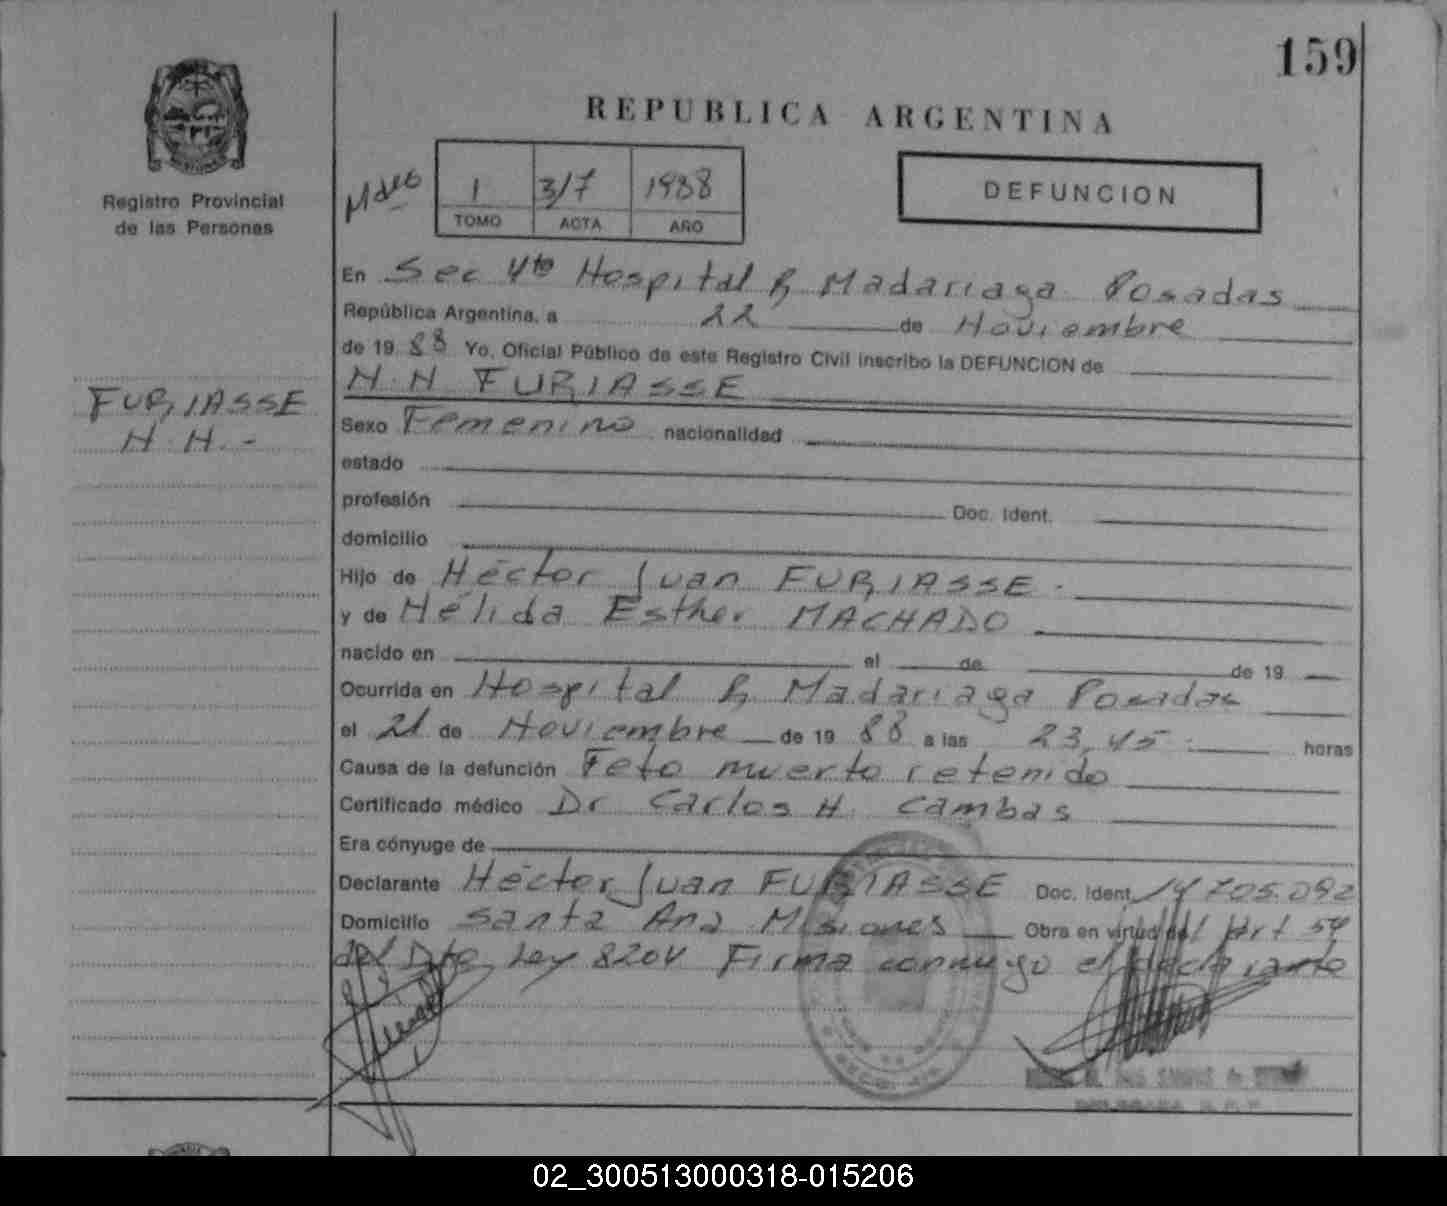 159
REPUBLICA ARGENTINA
Registro Provincial
de las Personas
1 3/7 1988
TOMO ACTA AÑO
DEFUNCION
En Sec 4ta Hospital R Madariaga Posadas
República Argentina, a 22 de Noviembre
de 19 88 Yo, Oficial Público de este Registro Civil inscribo la DEFUNCION de
N.N FURIASSE
FURIASSE
N.N.-
Sexo Femenino nacionalidad
estado
profesión Doc. Ident.
domicilio
Hijo de Héctor Juan FURIASSE.
y de Hélida Esther MACHADO
nacido en el de de 19
Ocurrida en Hospital R Madariaga Posadas
el 21 de Noviembre de 19 88 a las 23,45 horas
Causa de la defunción Feto muerto retenido
Certificado médico Dr Carlos H. Cambas
Era cónyuge de
Declarante Héctor Juan FURIASSE Doc. Ident. 14705.092
Domicilio Santa Ana Misiones Obra en virtud del Art 54
del Dto Ley 8204 Firma conmigo el declarante
02_300513000318-015206